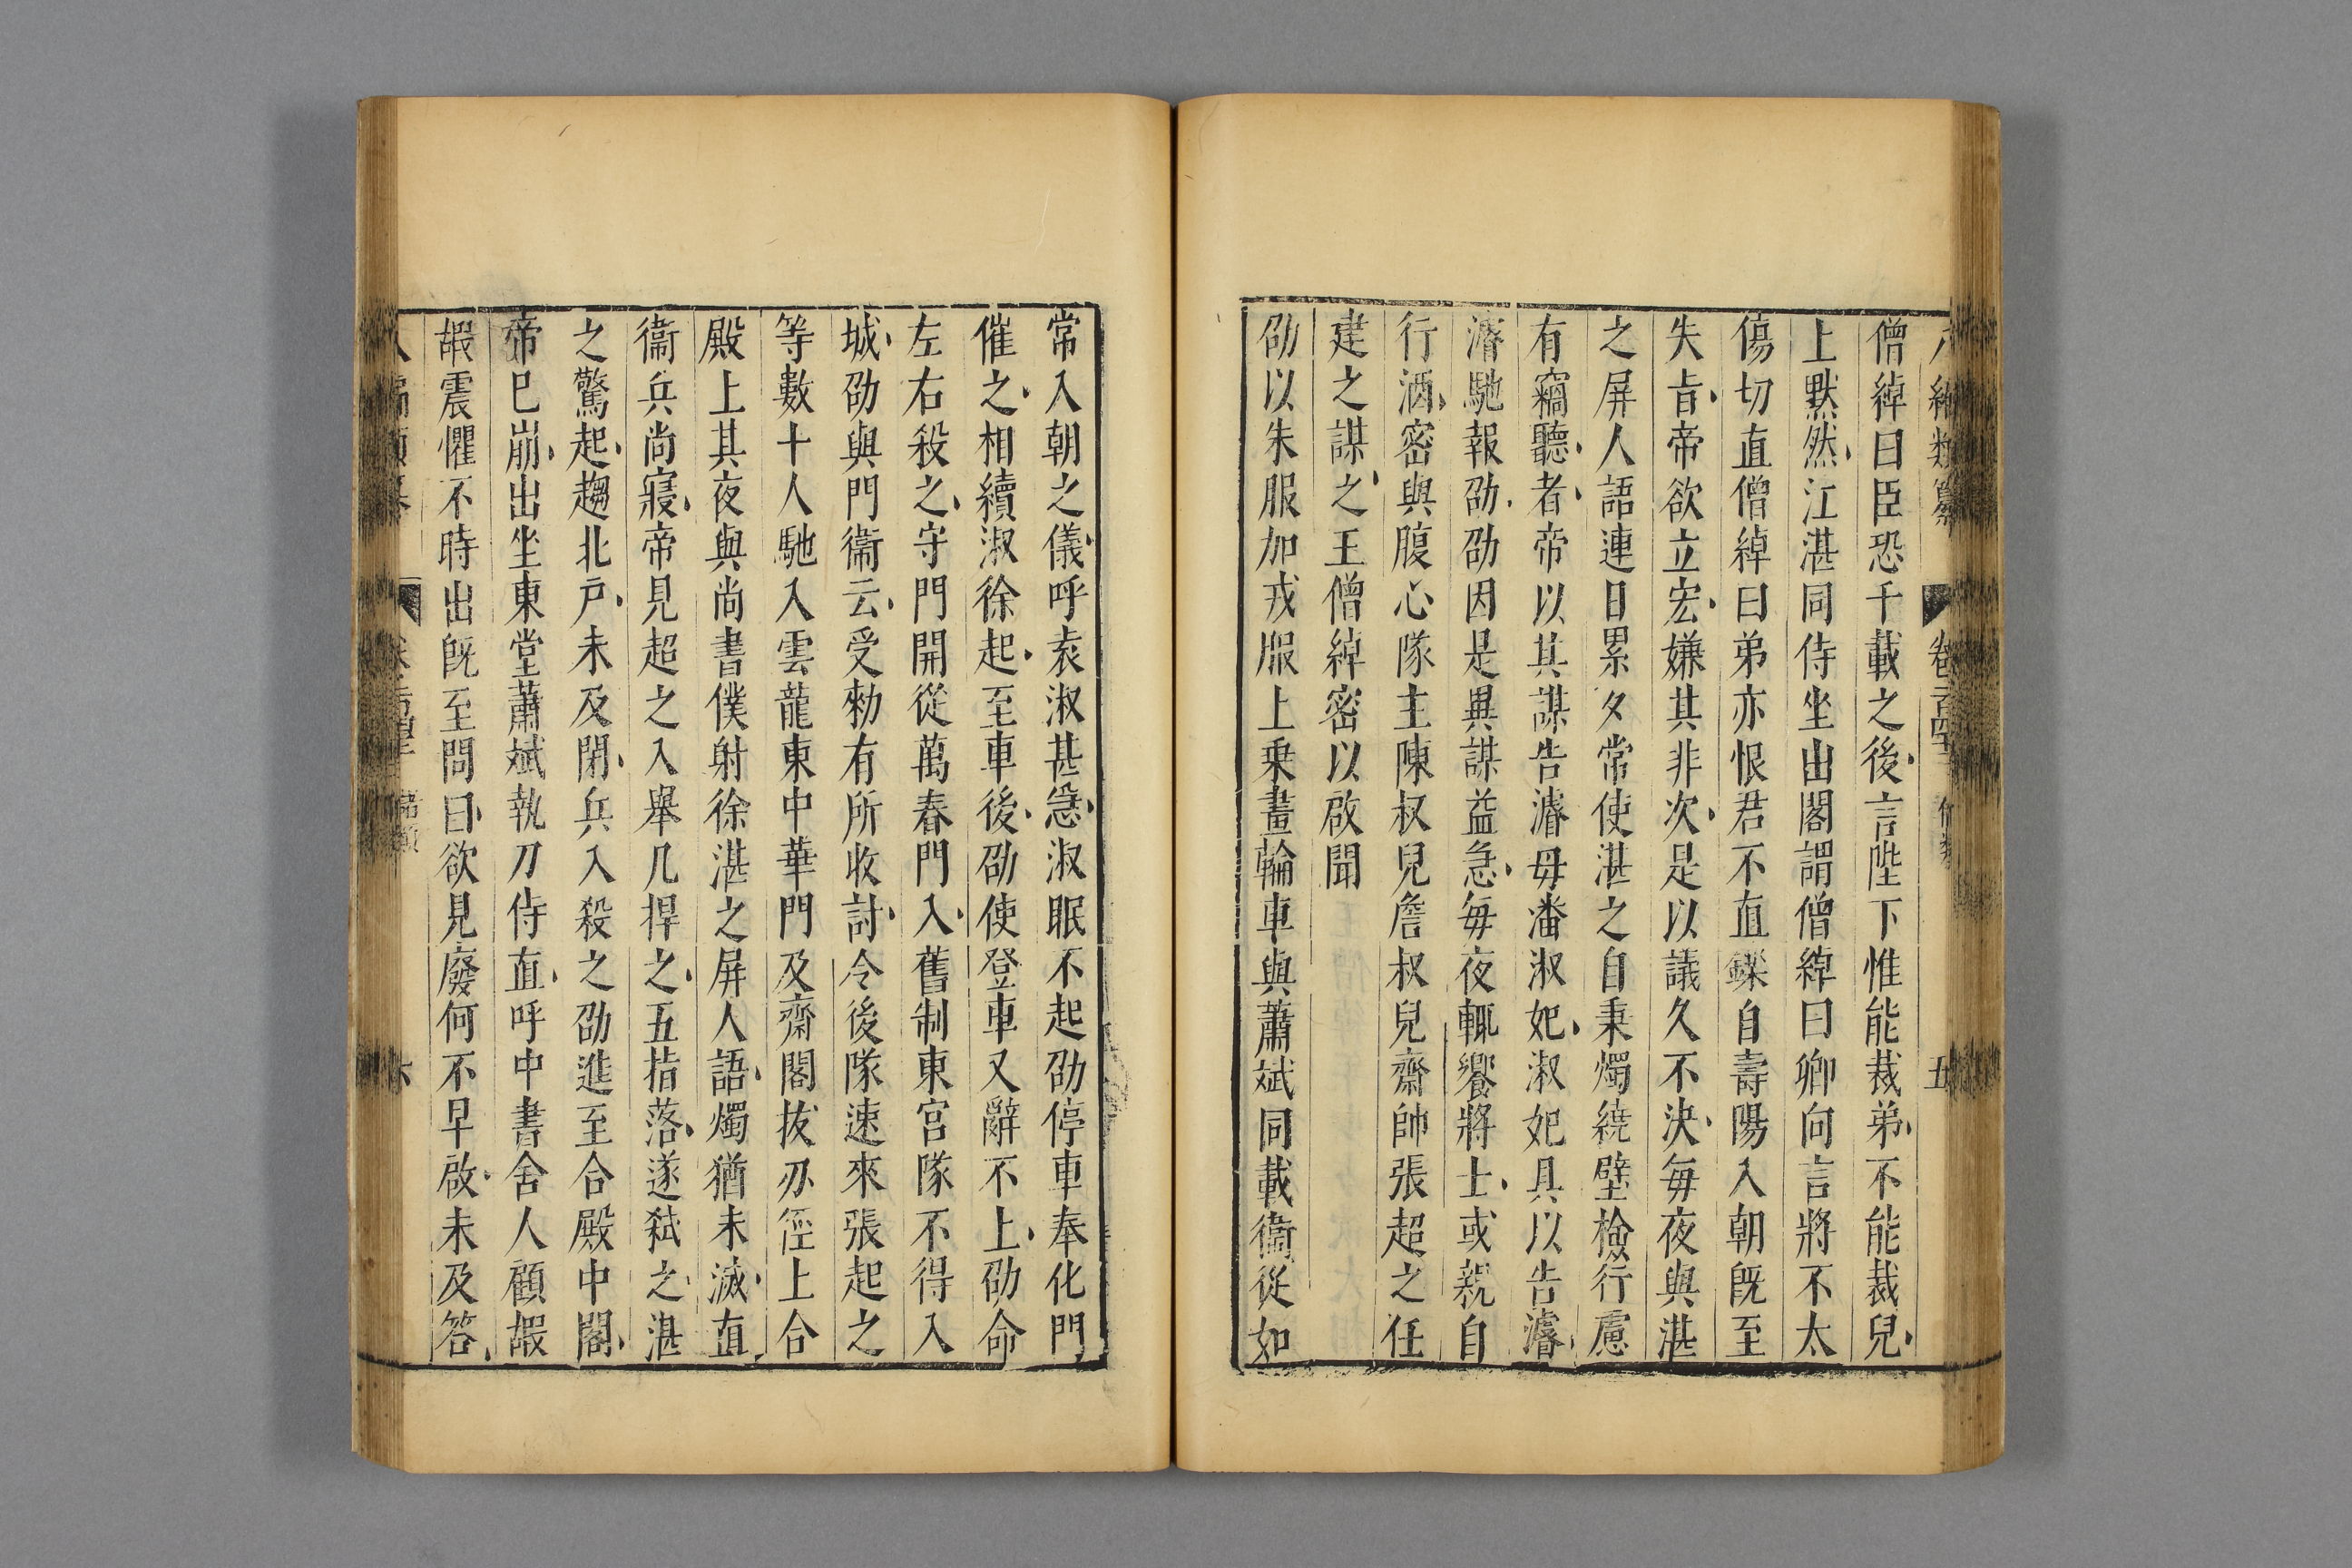 僧綽曰臣恐千載之後言陛下惟能裁弟不能裁兒
上默然江湛同侍坐出閣謂僧綽曰卿向言將不太
傷切直僧綽曰弟亦恨君不直鑠自壽陽入朝旣至
失㫖帝欲立宏嫌其非次是以議久不決毎夜與湛
之屏人語連日累夕常使湛之自秉燭繞壁檢行慮
有竊聽者帝以其謀告濬毋潘淑妃淑妃具以告濬
濬馳報劭劭因是異謀益急毎夜輒饗將士或親自
行酒密與腹心隊主陳叔兒詹叔兒齋帥張超之任
建之謀之王僧綽密以啟聞
劭以朱服加戎服上乗畫輪車與蕭斌同載衞從如
常入朝之儀呼袁淑甚急淑眠不起劭停車奉化門
催之相續淑徐起至車後劭使登車又辭不上劭命
左右殺之守門開從萬春門入舊制東宮隊不得入
城劭與門衞云受勅有所收討令後隊速來張起之
等數十人馳入雲龍東中華門及齋閣拔刃徑上合
殿上其夜與尚書僕射徐湛之屏人語燭猶未滅直
衞兵尚寢帝見超之入舉几捍之五指落遂弑之湛
之驚起趨北戸未及開兵入殺之劭進至合殿中閣
帝巳崩出坐東堂蕭斌執刀侍直呼中書舍人顧嘏
嘏震懼不時出旣至問曰欲見廢何不早啟未及答